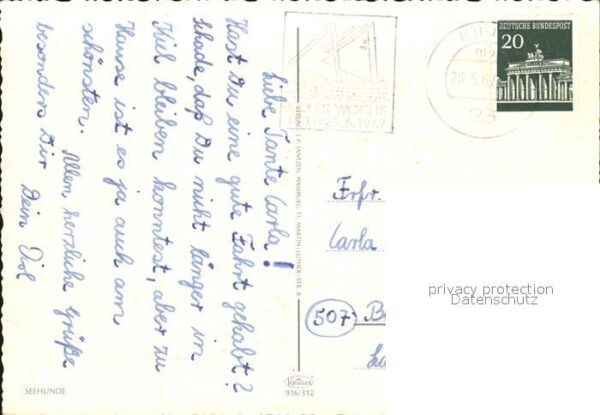 Liebe Tante Carla!
Hast Du eine gute Fahrt gehabt?
Schade, daß Du nicht länger in
Kiel bleiben konntest, aber zu
Hause ist es ja auch am
schönsten. Allen herzliche Grüße
besonders Dir
Dein
SEEHUNDE
VERLAG HAMBURG 11 MARTIN-LUTHER-STR. 8
Krüger
916/312
WOCHE
6.1967
KIEL
DEUTSCHE BUNDESPOST
20
Carla
507
privacy protection
Datenschutz